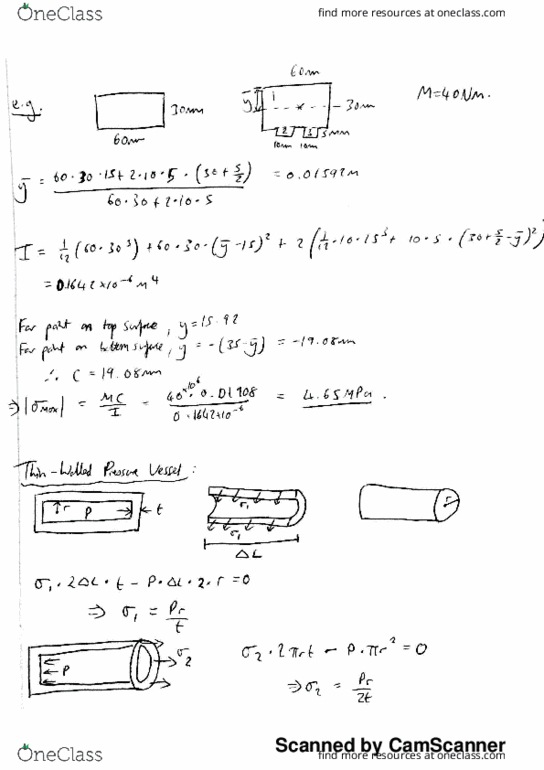 OneClass
find more resources at oneclass.com
e.g.
60mm
30mm
60mm
ȳ
1
30mm
2
3
5mm
10mm 10mm
M=40Nm.
ȳ = (60·30·15+2·10·5·(30+5/2)) / (60·30+2·10·5) = 0.01592m
I = 1/12 (60·30³) + 60·30·(ȳ-15)² + 2(1/12·10·15³ + 10·5·(30+5/2-ȳ)²
= 0.1642×10⁻⁶ m⁴
For point on top surface, y=15.92
For point on bottom surface, y = -(35-ȳ) = -19.08mm
∴ C = 19.08mm
⇒ |σmax| = MC/I = (40×10⁶·0.01908) / (0.1642×10⁻⁶) = 4.65MPa.
Thin-Walled Pressure Vessel:
r P t
σ₁
σ₁
ΔL
r
σ₁·2ΔL·t - P·ΔL·2·r = 0
⇒ σ₁ = Pr/t
P
σ₂
σ₂·2πrt - P·πr² = 0
⇒ σ₂ = Pr/2t
Scanned by CamScanner
OneClass
find more resources at oneclass.com